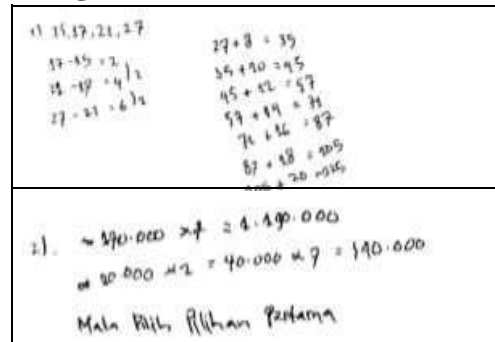 1) 15, 17, 21, 27
17 - 15 = 2
21 - 17 = 4 ) 2
27 - 21 = 6 ) 2
27 + 8 = 35
35 + 10 = 45
45 + 12 = 57
57 + 14 = 71
71 + 16 = 87
87 + 18 = 105
+ 20
2).
= 1.190.000
20.000 x 2 = 40.000 x 7 =
Maka Pilih Pilihan Pertama